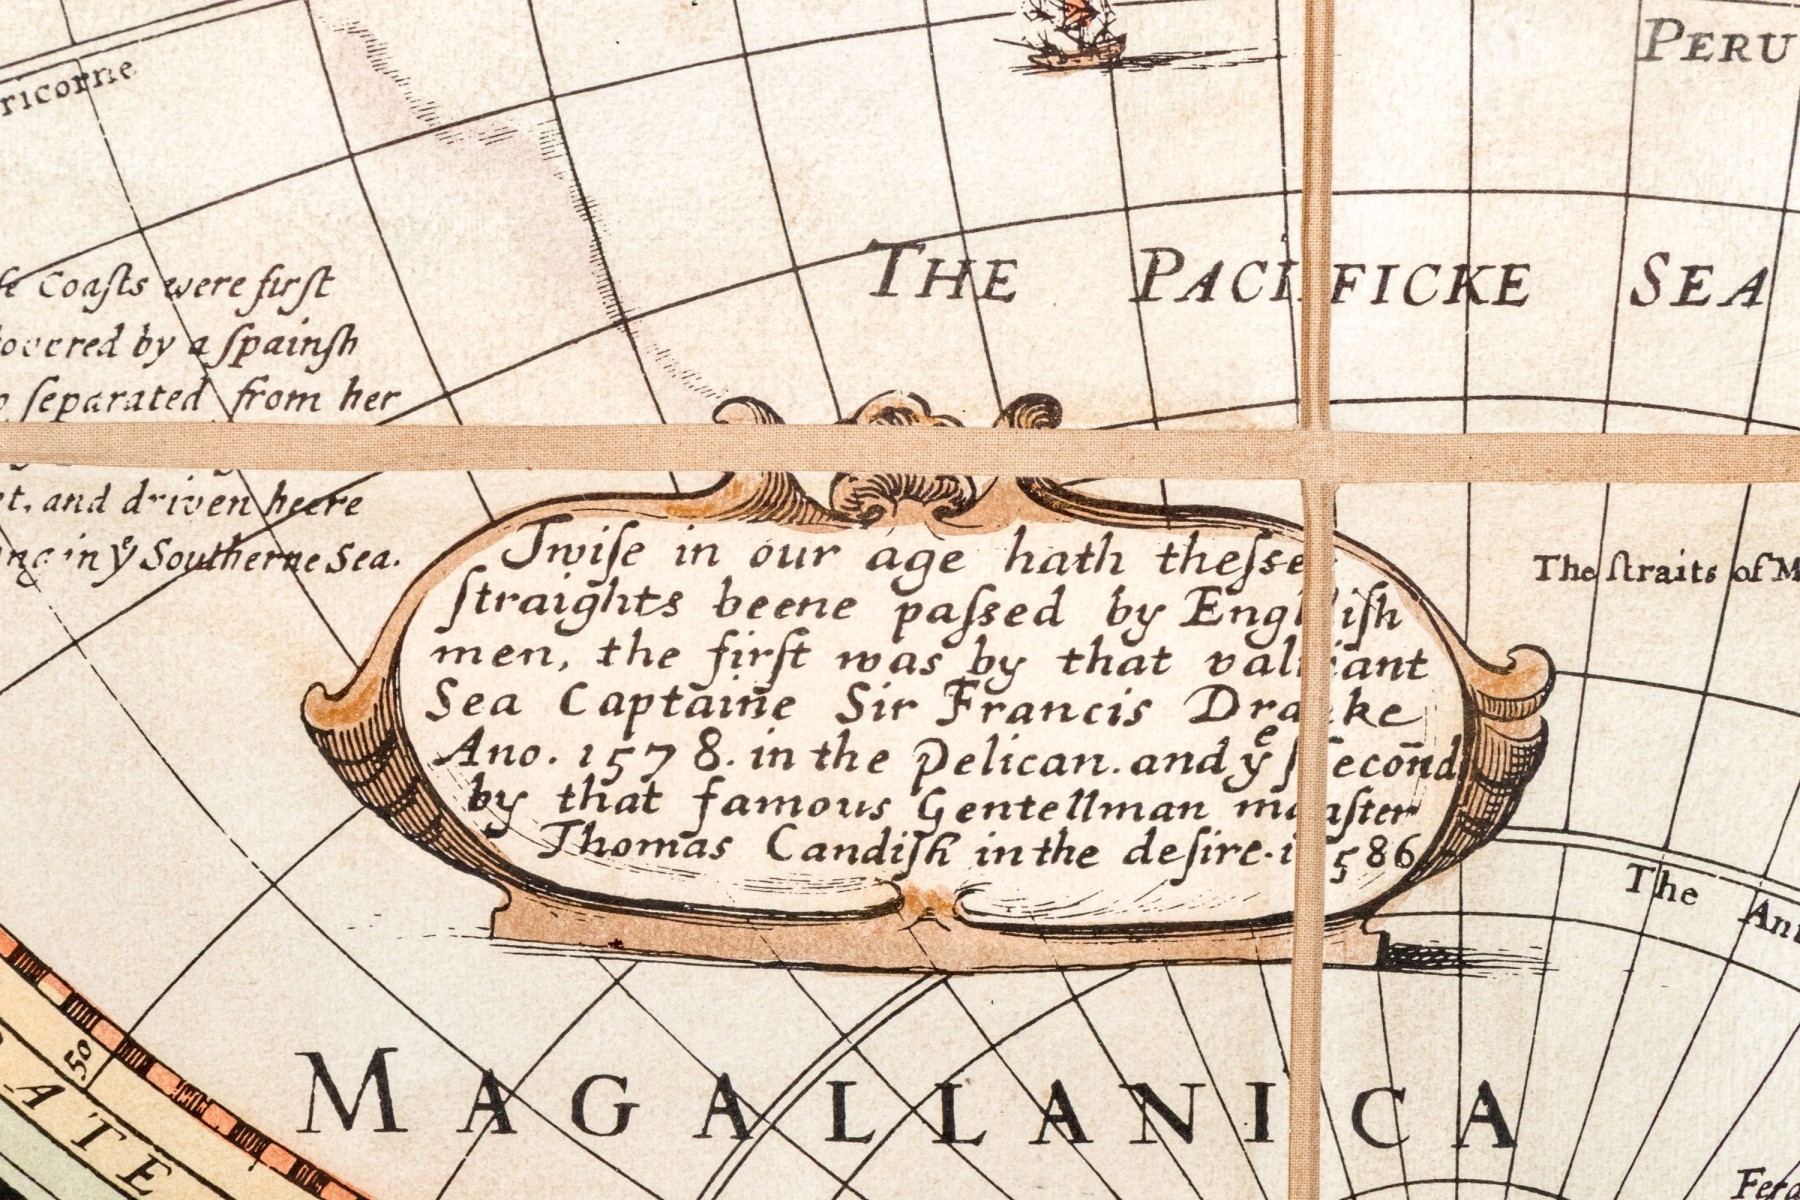 ricorne
PERU
THE PACIFICKE SEA
Coaſts were firſt
by a ſpainſh
ſeparated from her
and driven heere
in yͤ Southerne Sea.
Twiſe in our age hath theſse
ſtraights beene paſsed by Engliſh
men, the firſt was by that valiant
Sea Captaine Sir Francis Drake
Ano. 1578. in the Pelican. and yͤ ſecond
by that famous Gentellman maaſter
Thomas Candiſh in the deſire. 1586
The ſtraits of M
The Ant
50
ATE
MAGALLANICA
Ferd